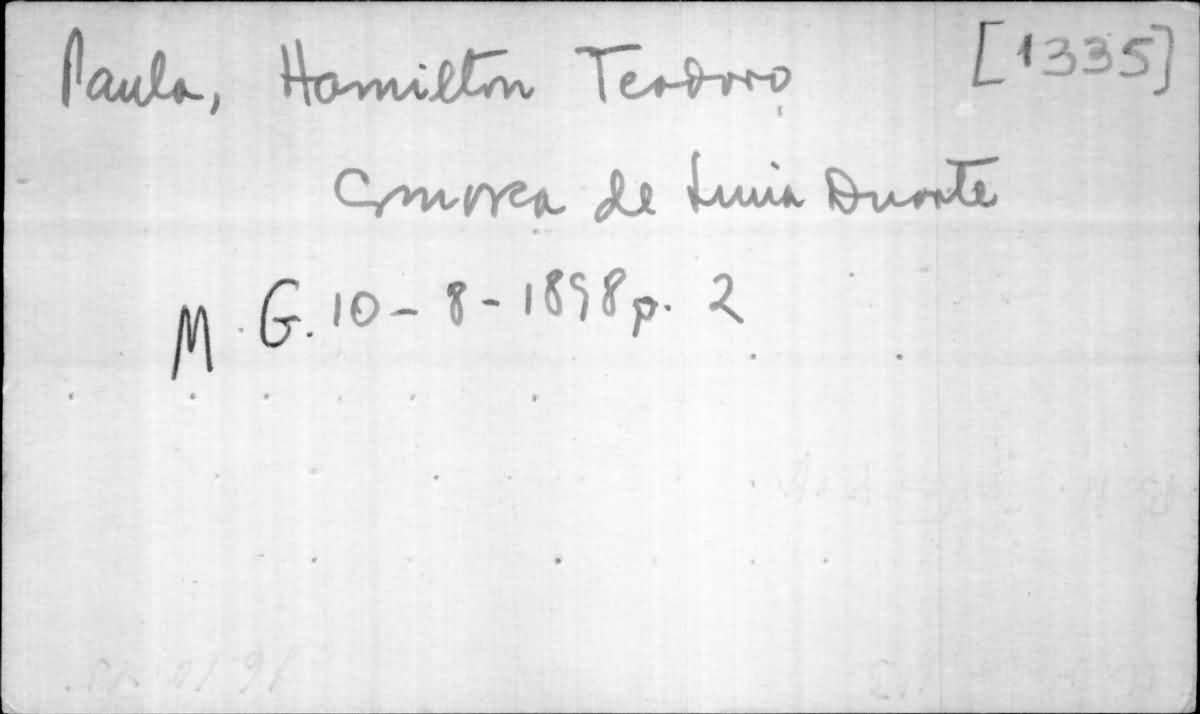 Paula, Hamilton Teodoro [1335]
Comarca de Lima Duarte
M. G. 10-8-1898 p. 2